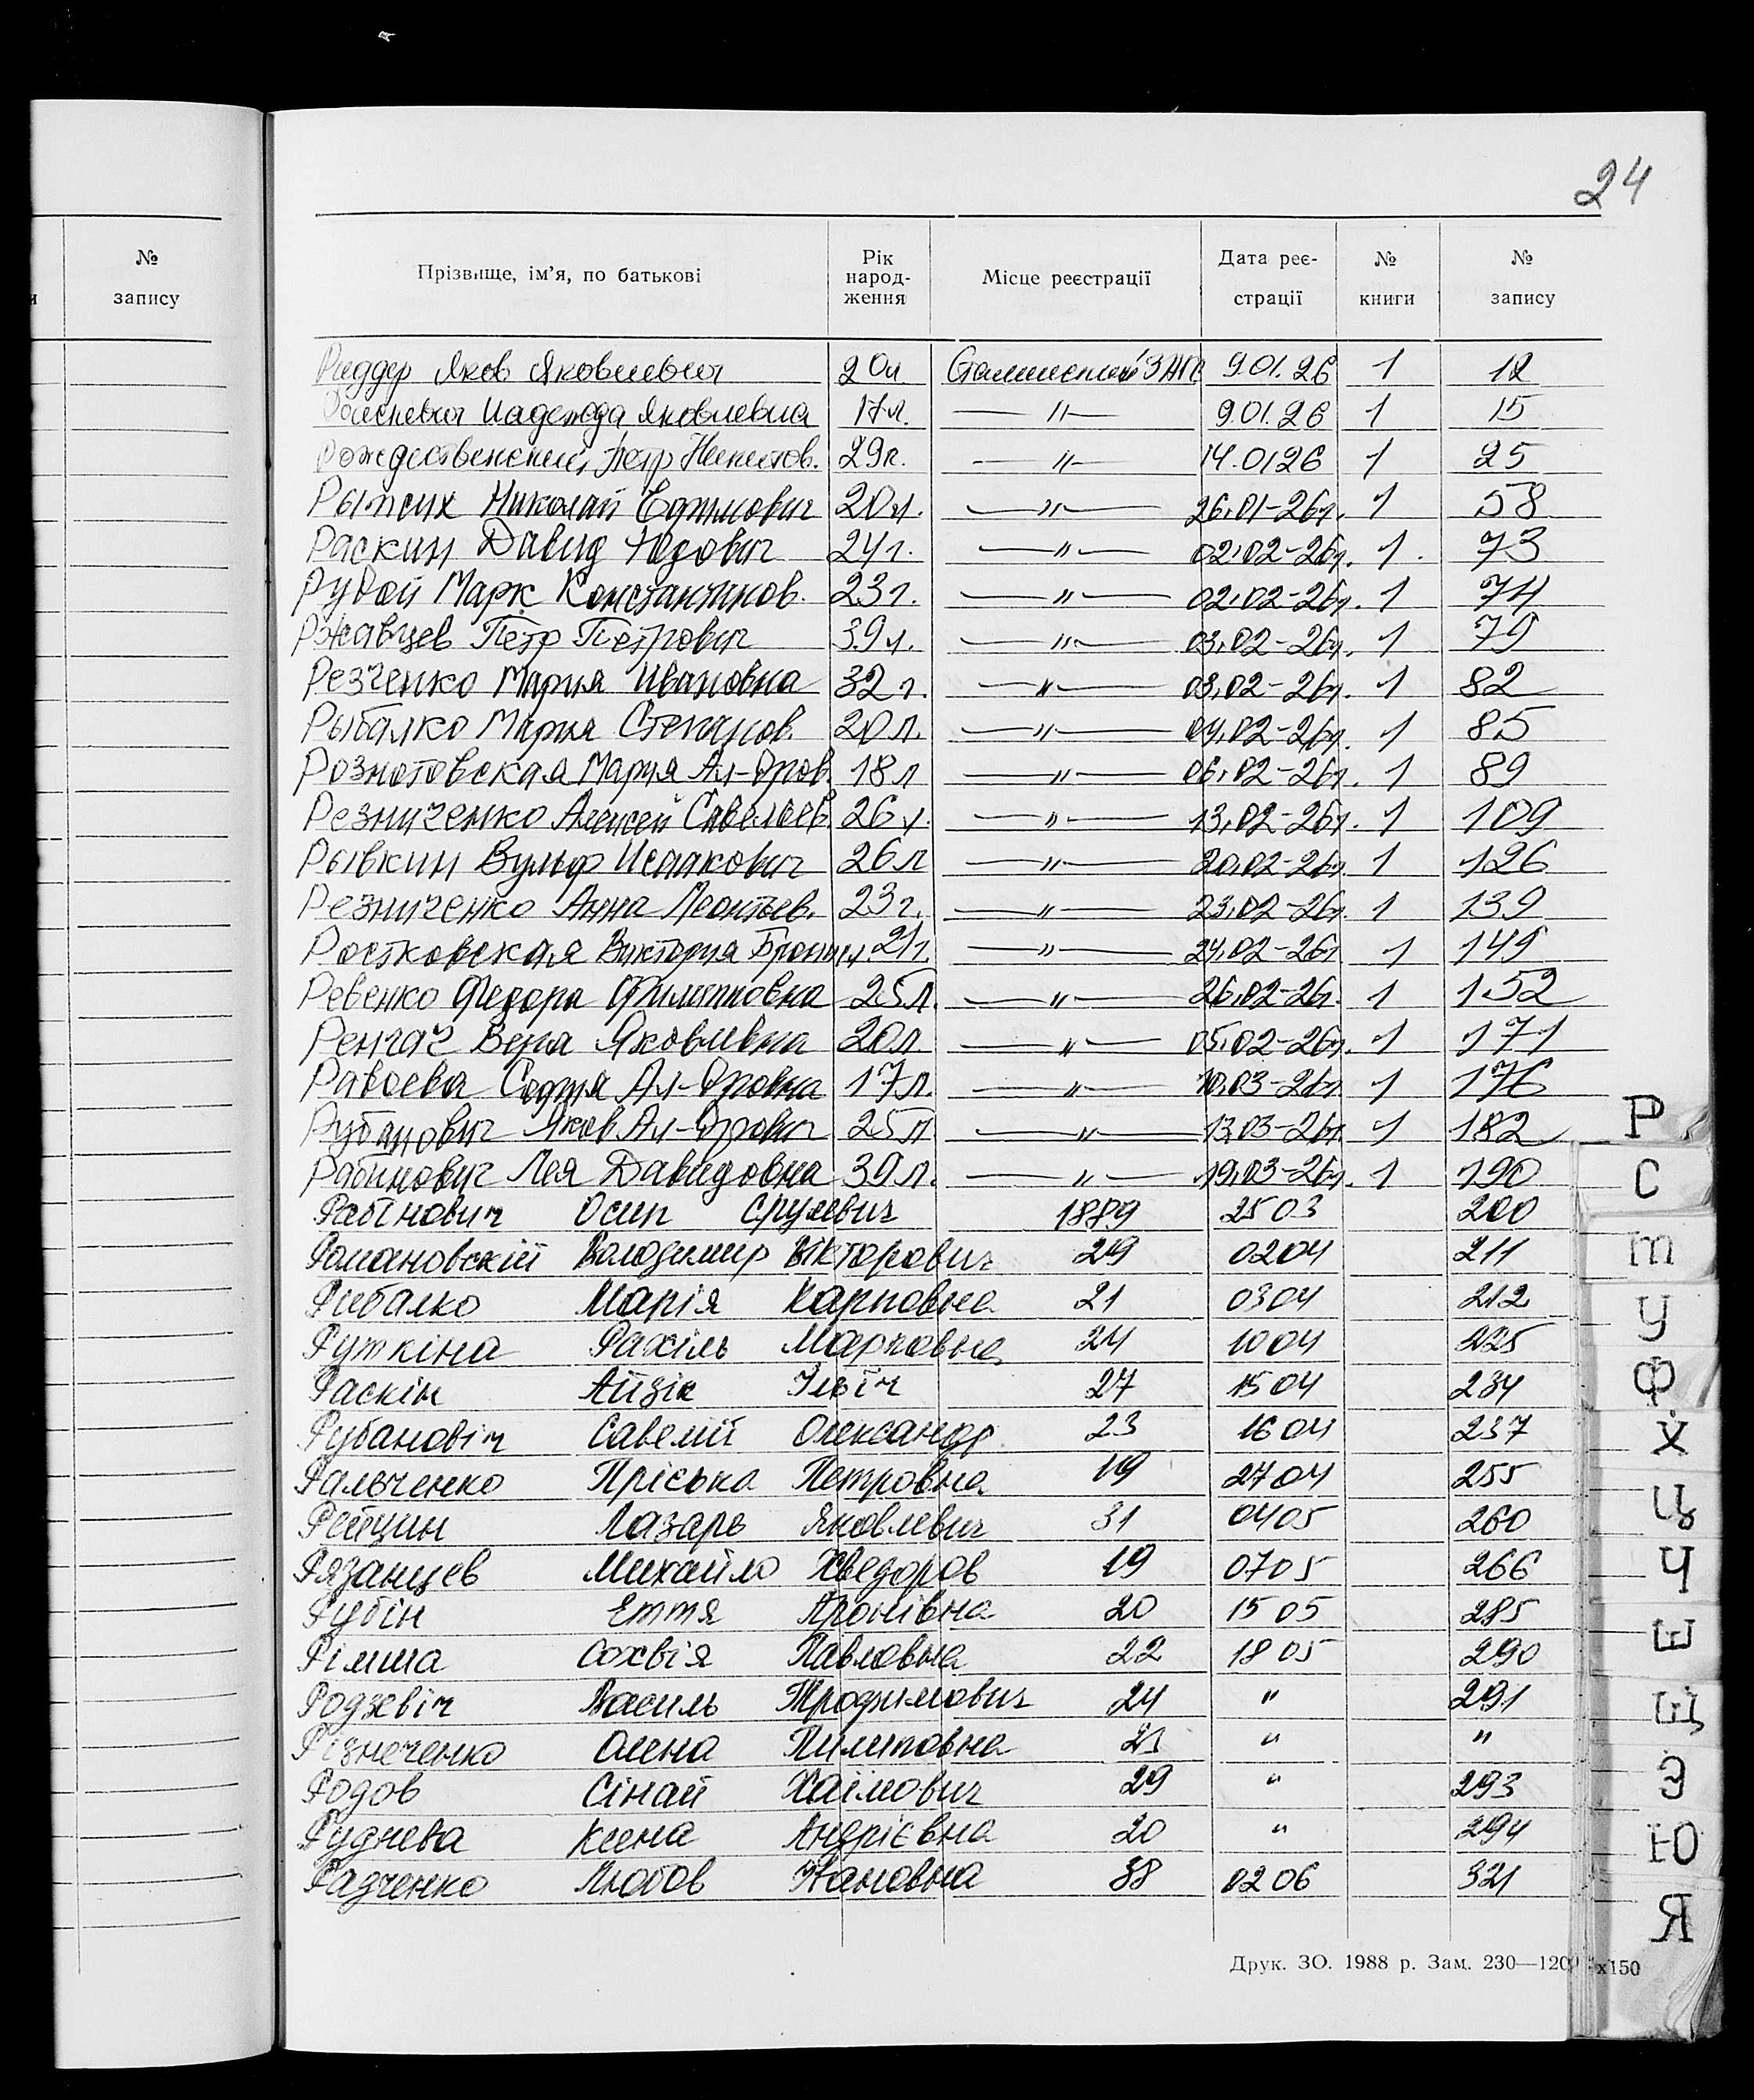 24
№ запису
Прізвище, ім'я, по батькові Рік народ-ження Місце реєстрації Дата реє-страції № книги № запису
Риддер Яков Яковлевич 20л Сталинский ЗАГС 9.01.26 1 12
Надежда Яковлевна 17л. —"— 9.01.26 1 15
Рождественский Петр Никитов. 29л. —"— 14.0126 1 25
Рыжих Николай Ефимович 20л. —"— 26.01-26г. 1 58
Раскин Давид Юдович 24г. —"— 02.02-26г. 1. 73
Рудой Марк Константинов. 23г. —"— 02.02-26г. 1 74
Ржавцев Петр Петрович 39л. —"— 03.02-26г. 1 79
Резченко Мария Ивановна 32г. —"— 03.02-26г. 1 82
Рыбалко Мария Степанов. 20л. —"— 04.02-26г. 1 85
Рознотовская Мария Ал-дров. 18л —"— 06.02-26г. 1 89
Резниченко Алексей Савельев. 26л. —"— 13.02-26г. 1 109
Рывкин Вульф Исаакович 26л —"— 20.02-26г. 1 126
Резниченко Анна Леонтьев. 23г. —"— 23.02-26г. 1 139
Ростковская Виктория Бронил 21г. —"— 24.02-26г 1 149
Ревенко Федора Филипповна 25л. —"— 26.02-26г. 1 152
Ренгач Вера Яковлевна 20л. —"— 05.02-26г. 1 171
Равоева София Ал-дровна 17л. —"— 10.03-26г. 1 176
Рубанович Яков Ал-дрович 25л —"— 13.03-26г. 1 182
Рабинович Лея Давидовна 39л. —"— 19.03-26г. 1 190
Рабінович Осип Срулевич 1889 25 03 200
Романовскій Володимир Вікторович 29 02 04 211
Рибалко Марія Карповна 21 03 04 212
Руткіна Рахіль Марковна 24 10 04 225
Раскін Айзік Ілвіч 27 15 04 234
Рубановіч Савелій Олександр. 23 16 04 237
Ральченко Пріська Петровна 19 27 04 255
Рейцин Лазарь Яковлевич 31 04 05 260
Рязанцев Михайло Хведоров 19 07 05 266
Рубін Еття Аронівна 20 15 05 285
Рімша Сохвія Павловна 22 18 05 290
Родзевіч Василь Трофимович 24 " 291
Різнеченко Олена Пилиповна 21 " "
Родов Сінай Хаімович 29 " 293
Руднева Ксена Андрієвна 20 " 294
Радченко Любов Ивановна 38 02 06 321
Р
С
т
У
Ф
Х
Ц
Ч
Ш
Щ
Э
Ю
Я
Друк. ЗО. 1988 р. Зам. 230—120 х150